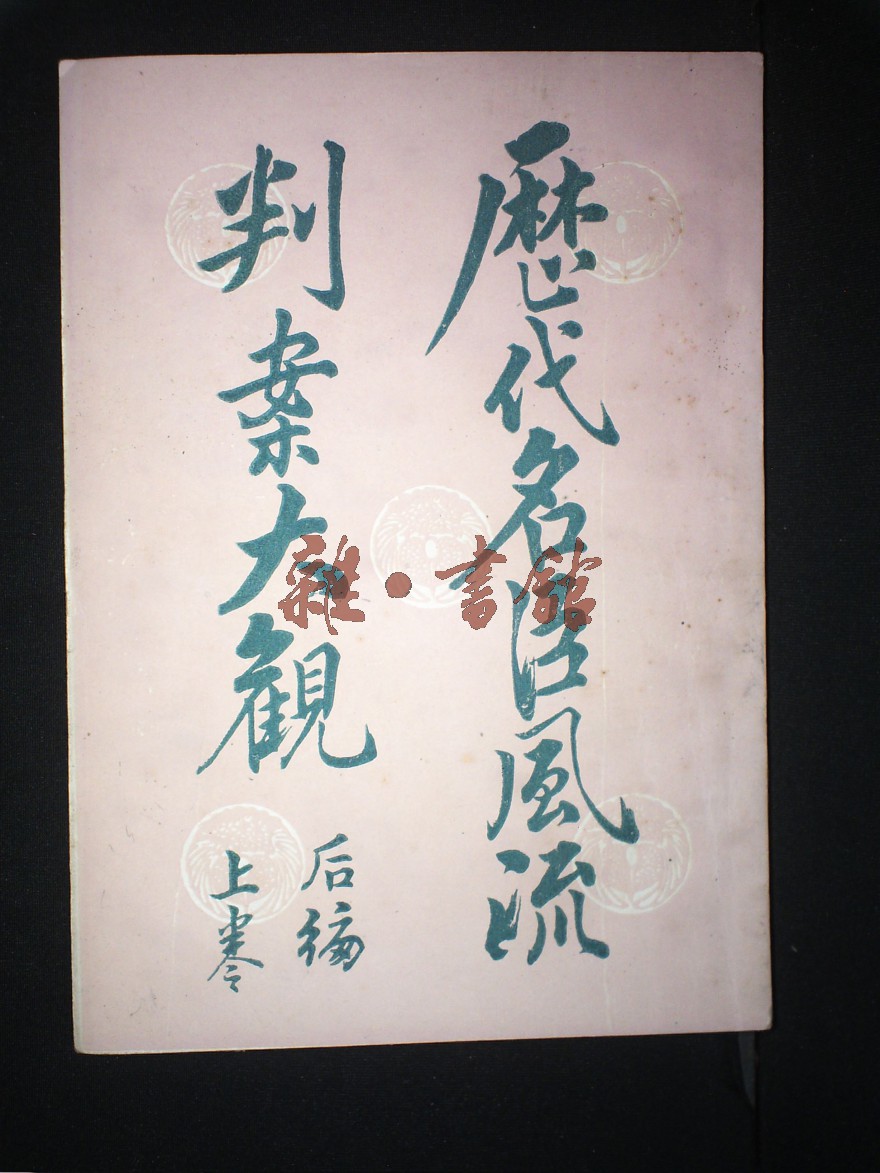 歴代名臣風流
判案大観
后编
上卷
雜·書館